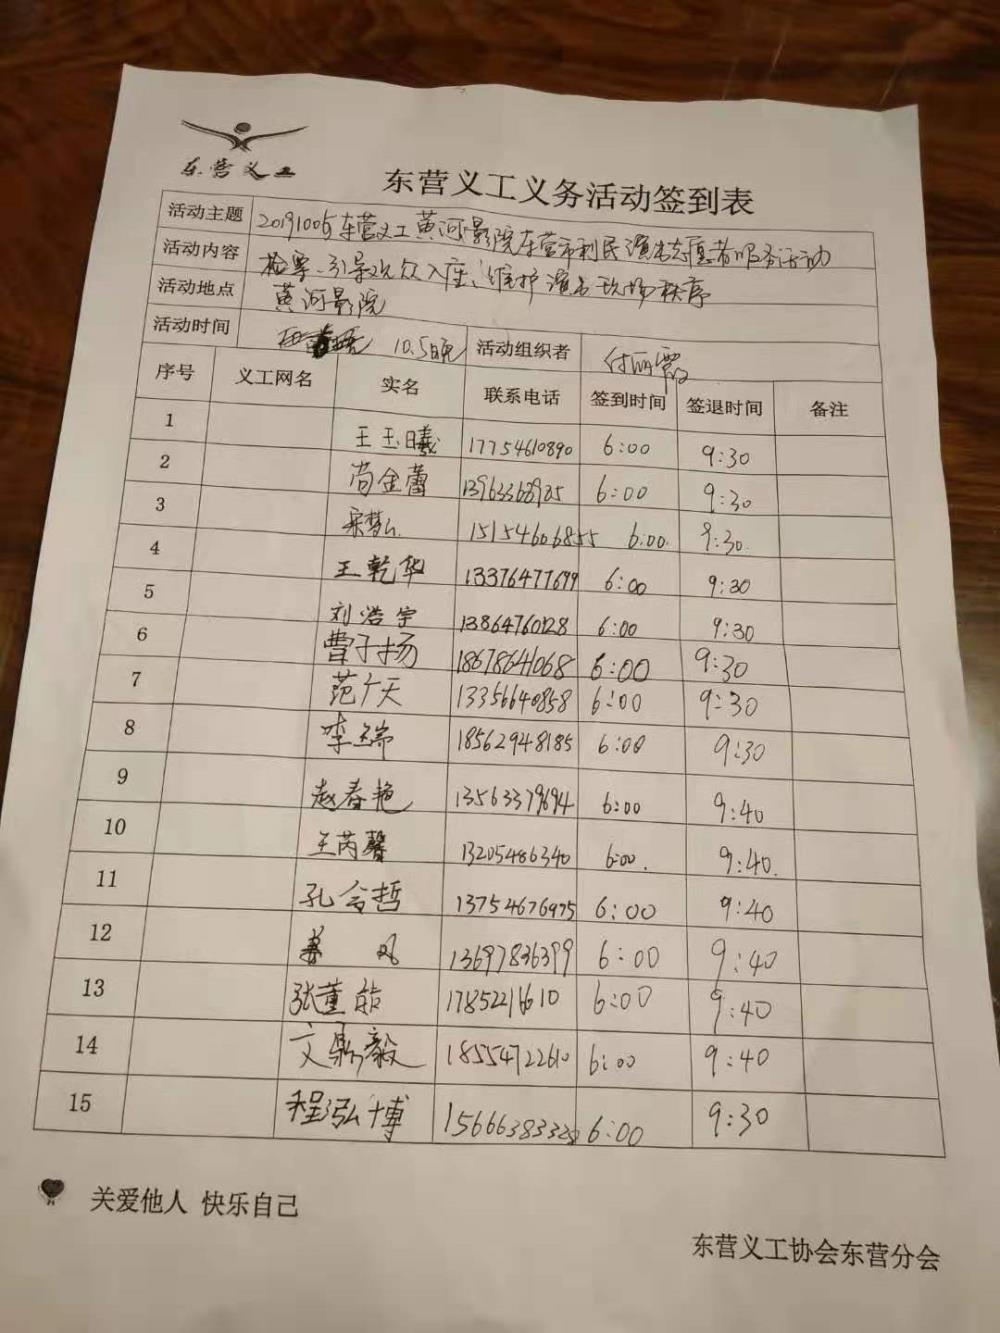 东营义工
东营义工义务活动签到表
活动主题 20191005东营义工黄河影院东营市利民演出志愿者服务活动
活动内容 检票、引导观众入座、维护演出现场秩序
活动地点 黄河影院
活动时间 10.5日晚 活动组织者 付丽霞
序号 义工网名 实名 联系电话 签到时间 签退时间 备注
1 王玉曦 17754610890 6:00 9:30
2 尚金蕾 6:00 9:30
3 15154606855 6:00 9:30
4 王乾华 13376477699 6:00 9:30
5 刘浩宇 13864760128 6:00 9:30
6 曹子扬 18678641068 6:00 9:30
7 范广天 13356640858 6:00 9:30
8 李瑞 18562948185 6:00 9:30
9 赵春艳 13563379694 6:00 9:40
10 王芮馨 13205486340 6:00 9:40
11 孔令哲 13754676975 6:00 9:40
12 姜凤 13697836399 6:00 9:40
13 张董 17852216610 6:00 9:40
14 文鼎毅 18554722610 6:00 9:40
15 程泓博 6:00 9:30
关爱他人 快乐自己
东营义工协会东营分会